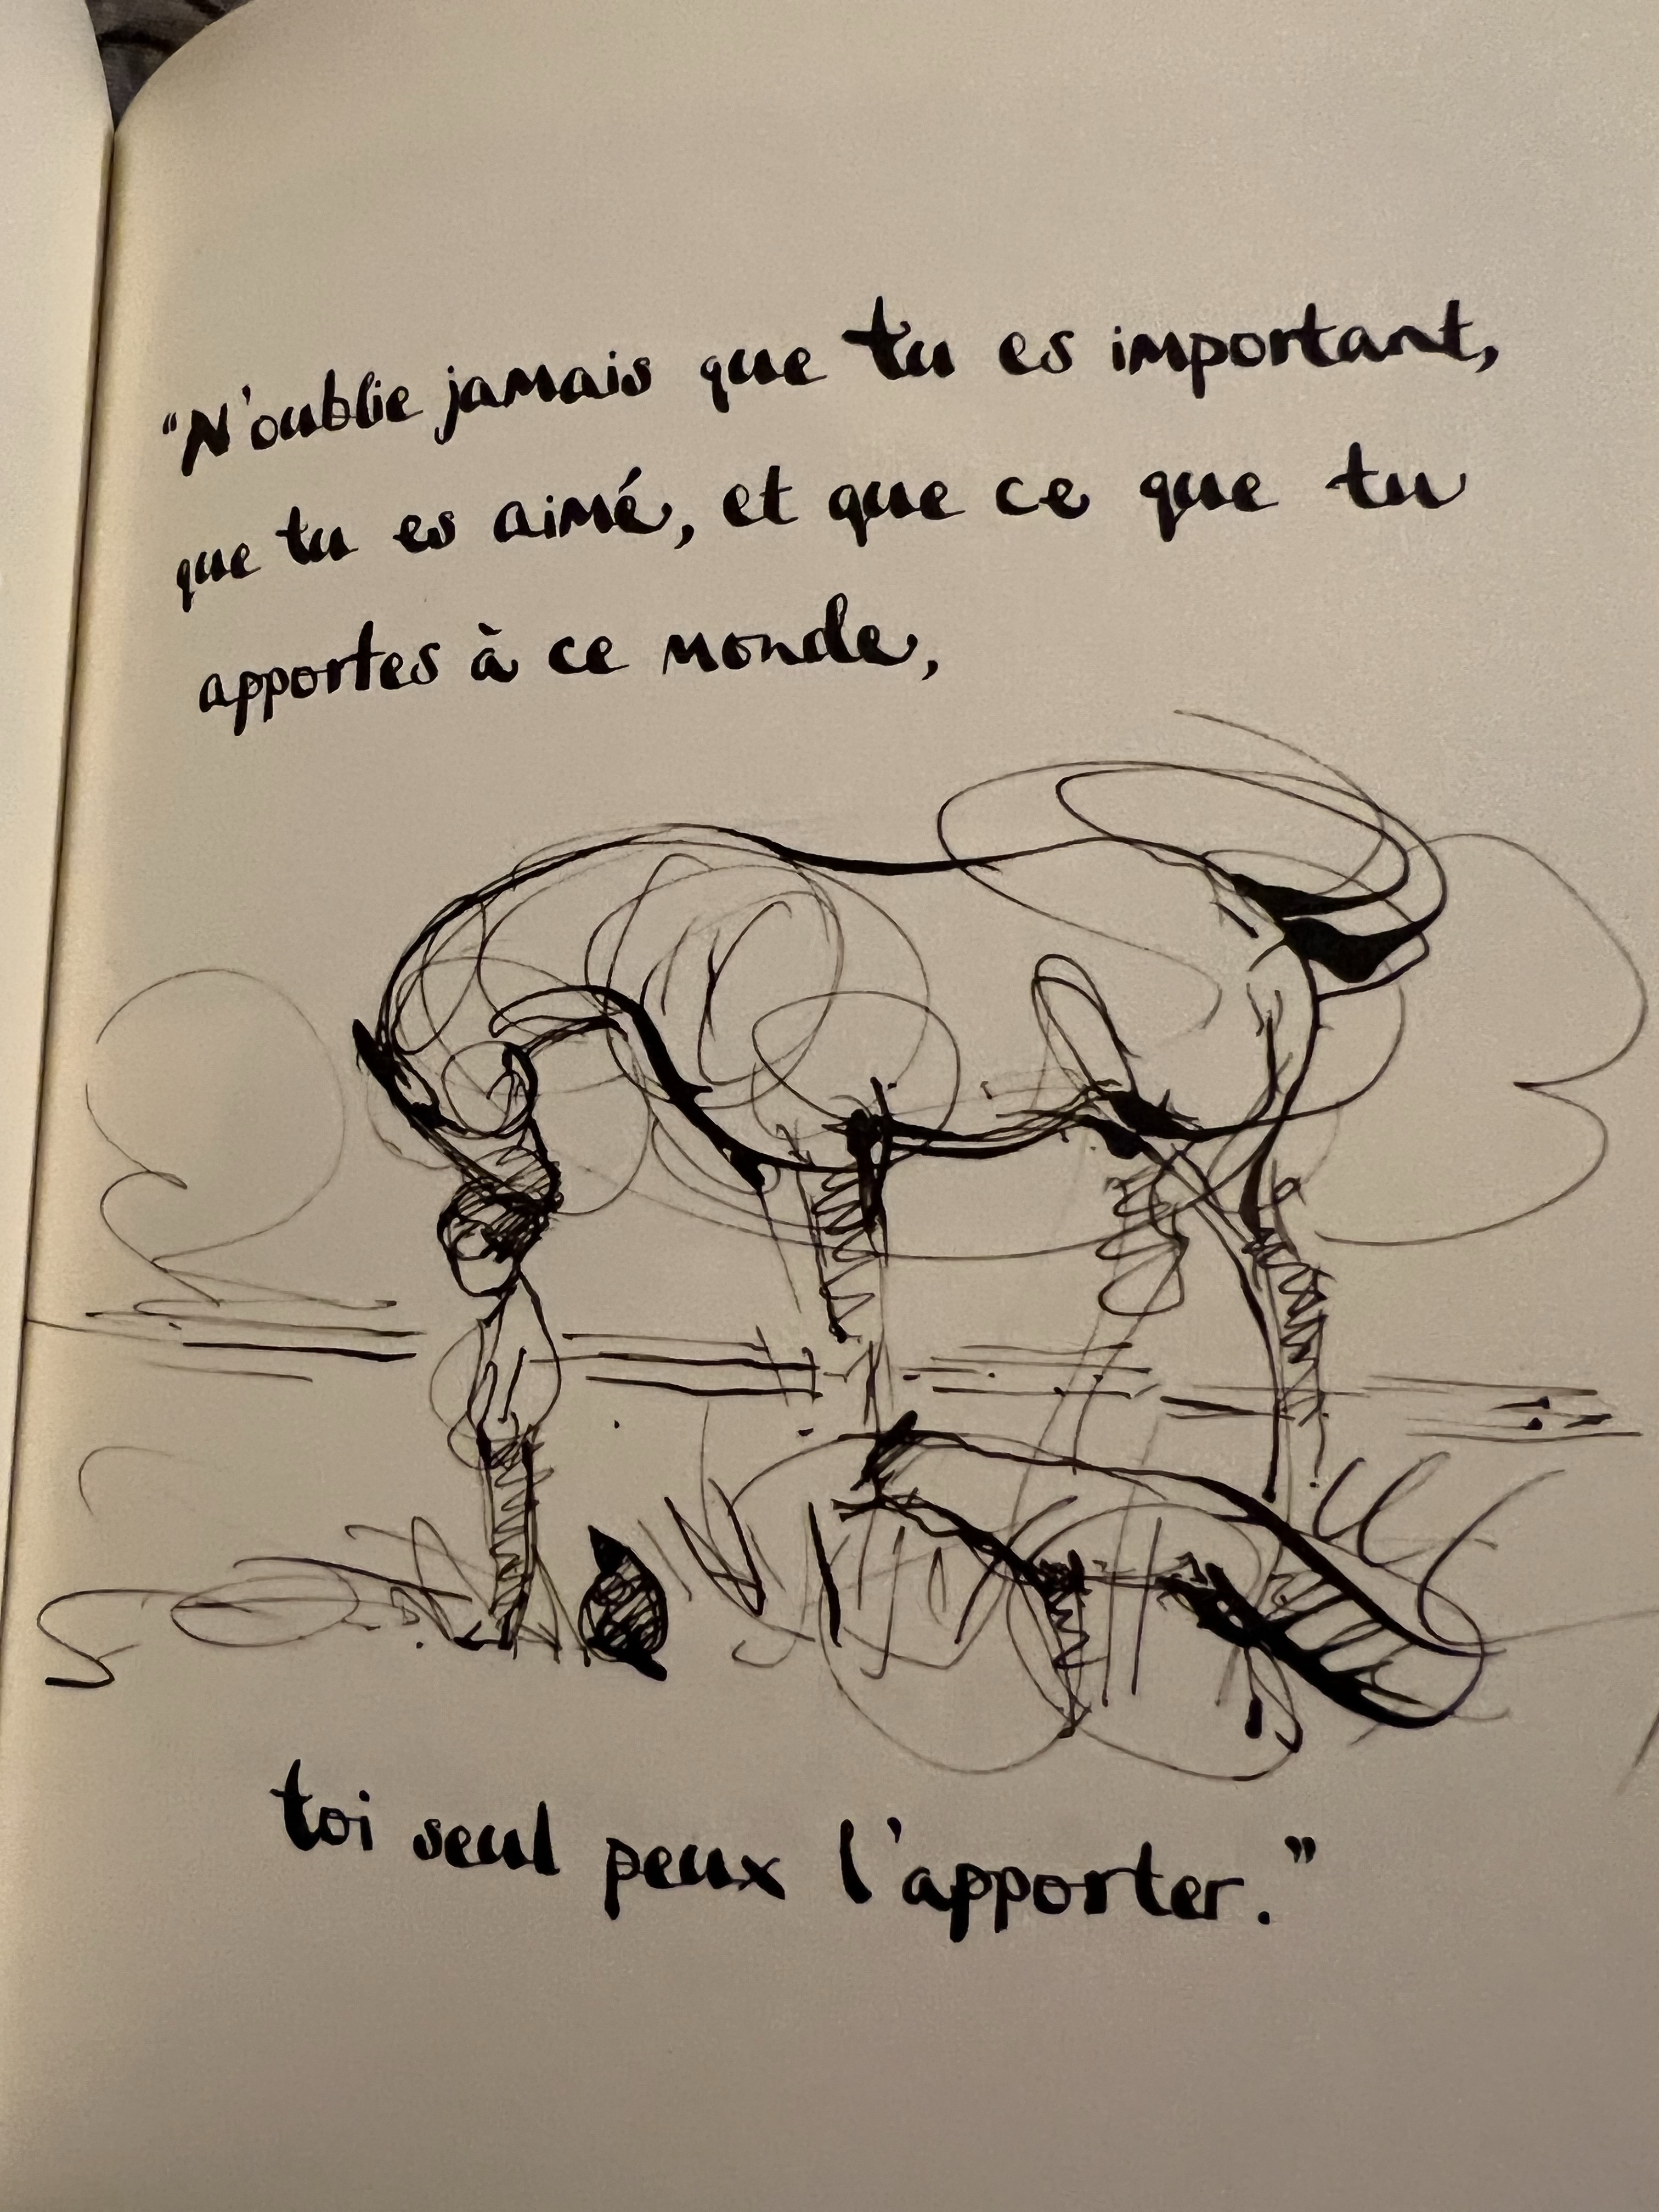 "N'oublie jamais que tu es important,
que tu es aimé, et que ce que tu
apportes à ce monde,
toi seul peux l'apporter."